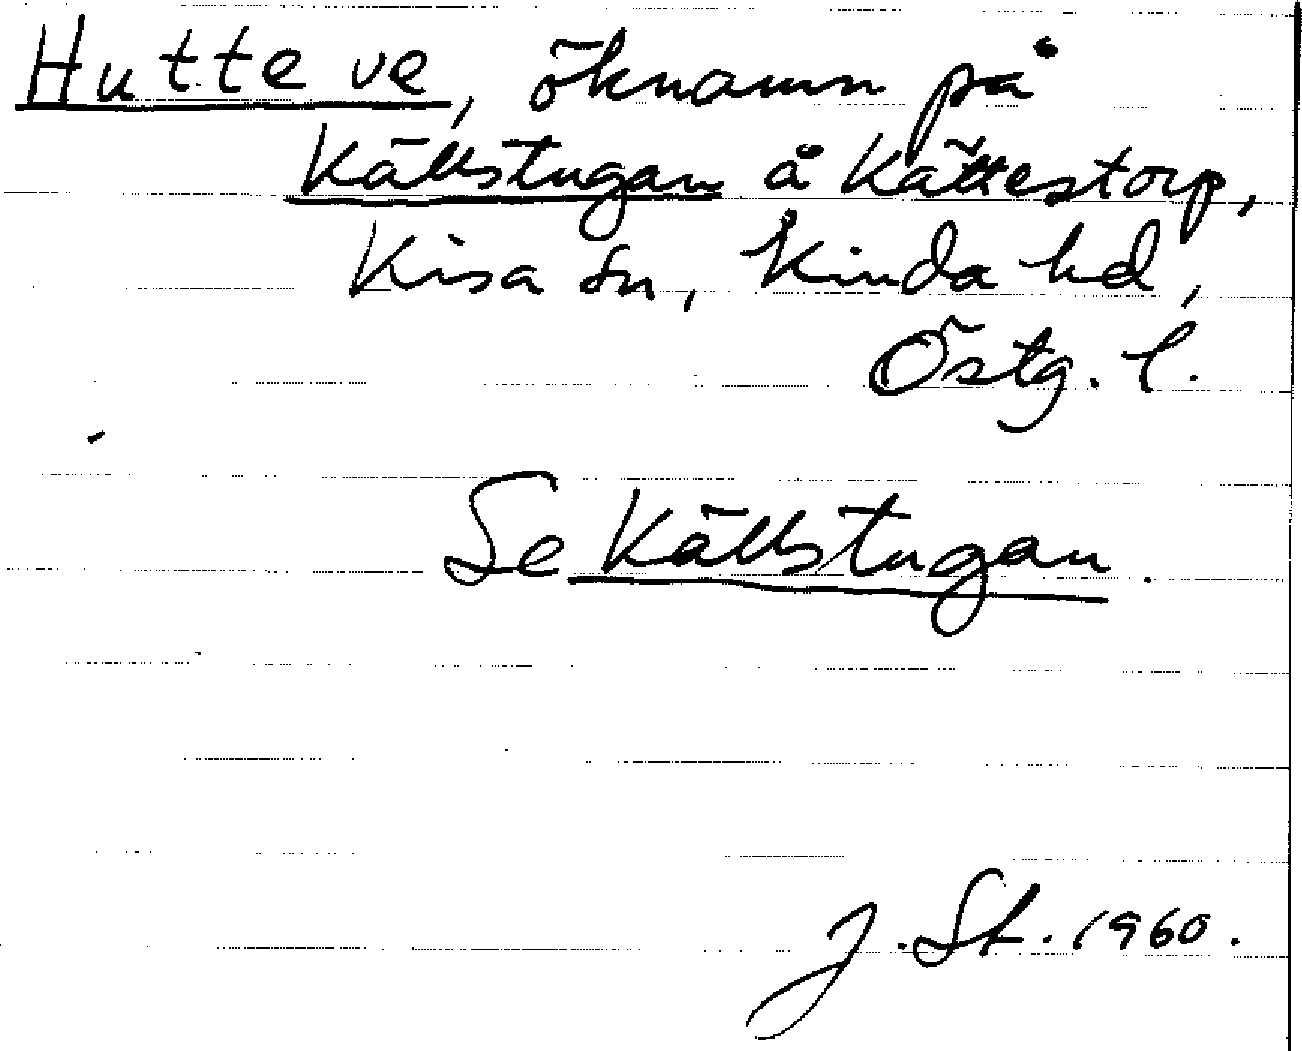 Hutte ve, öknamn på
Källstugan å Kättestorp,
Kisa sn, Kinda hd,
Östg. l.
Se Källstugan.
J. St. 1960.